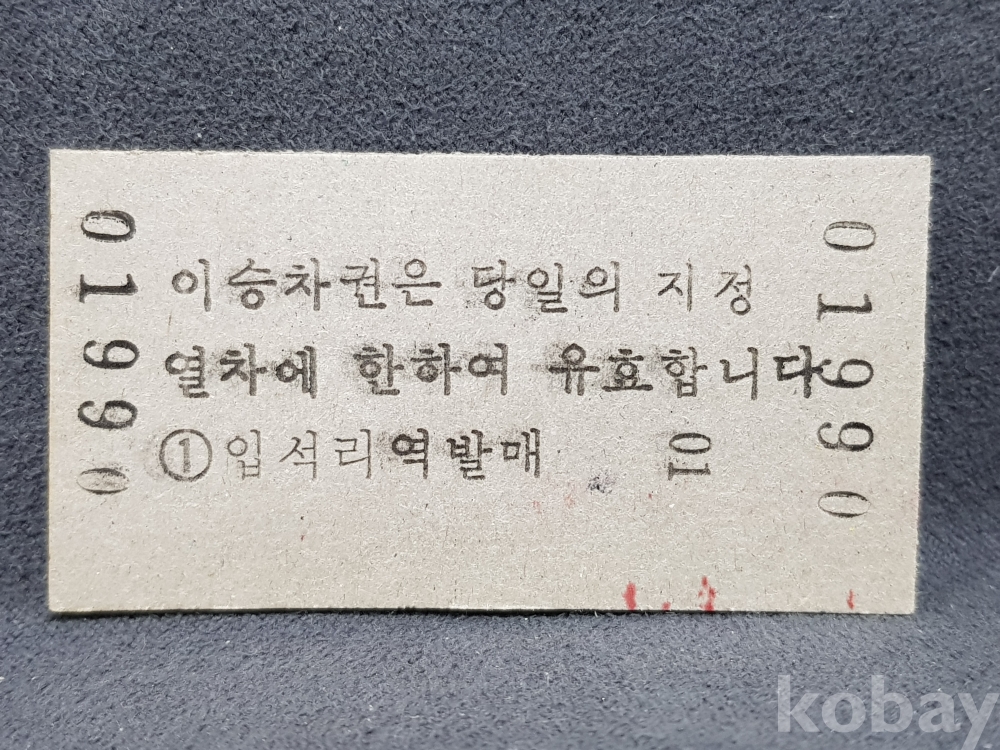 01990
이승차권은 당일의 지정
열차에 한하여 유효합니다
①입석리역발매 01
01990
kobay